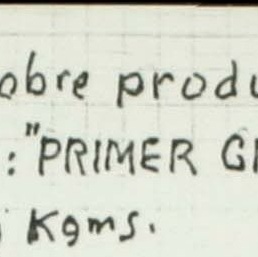 obre produ
: "PRIMER G
Kgms.